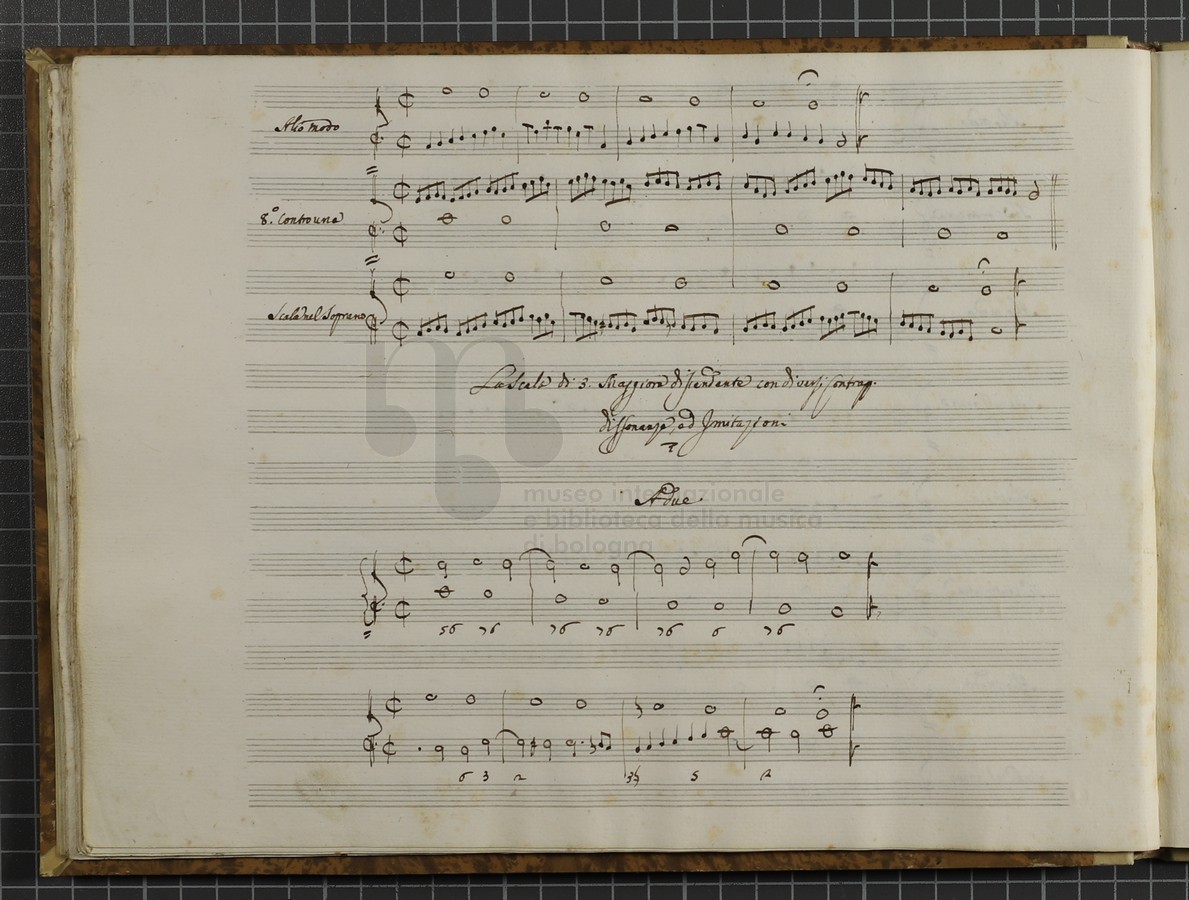 Alio modo
8.° Contro una
Scala nel Soprano
La Scala di 3. Maggiore discendente con diversi Contrap.
dissonanze, ed Imitazioni
museo internazionale
A due.
e biblioteca della musica
di bologna
56 76 76 76 76 6 76
6 3 2 5 2